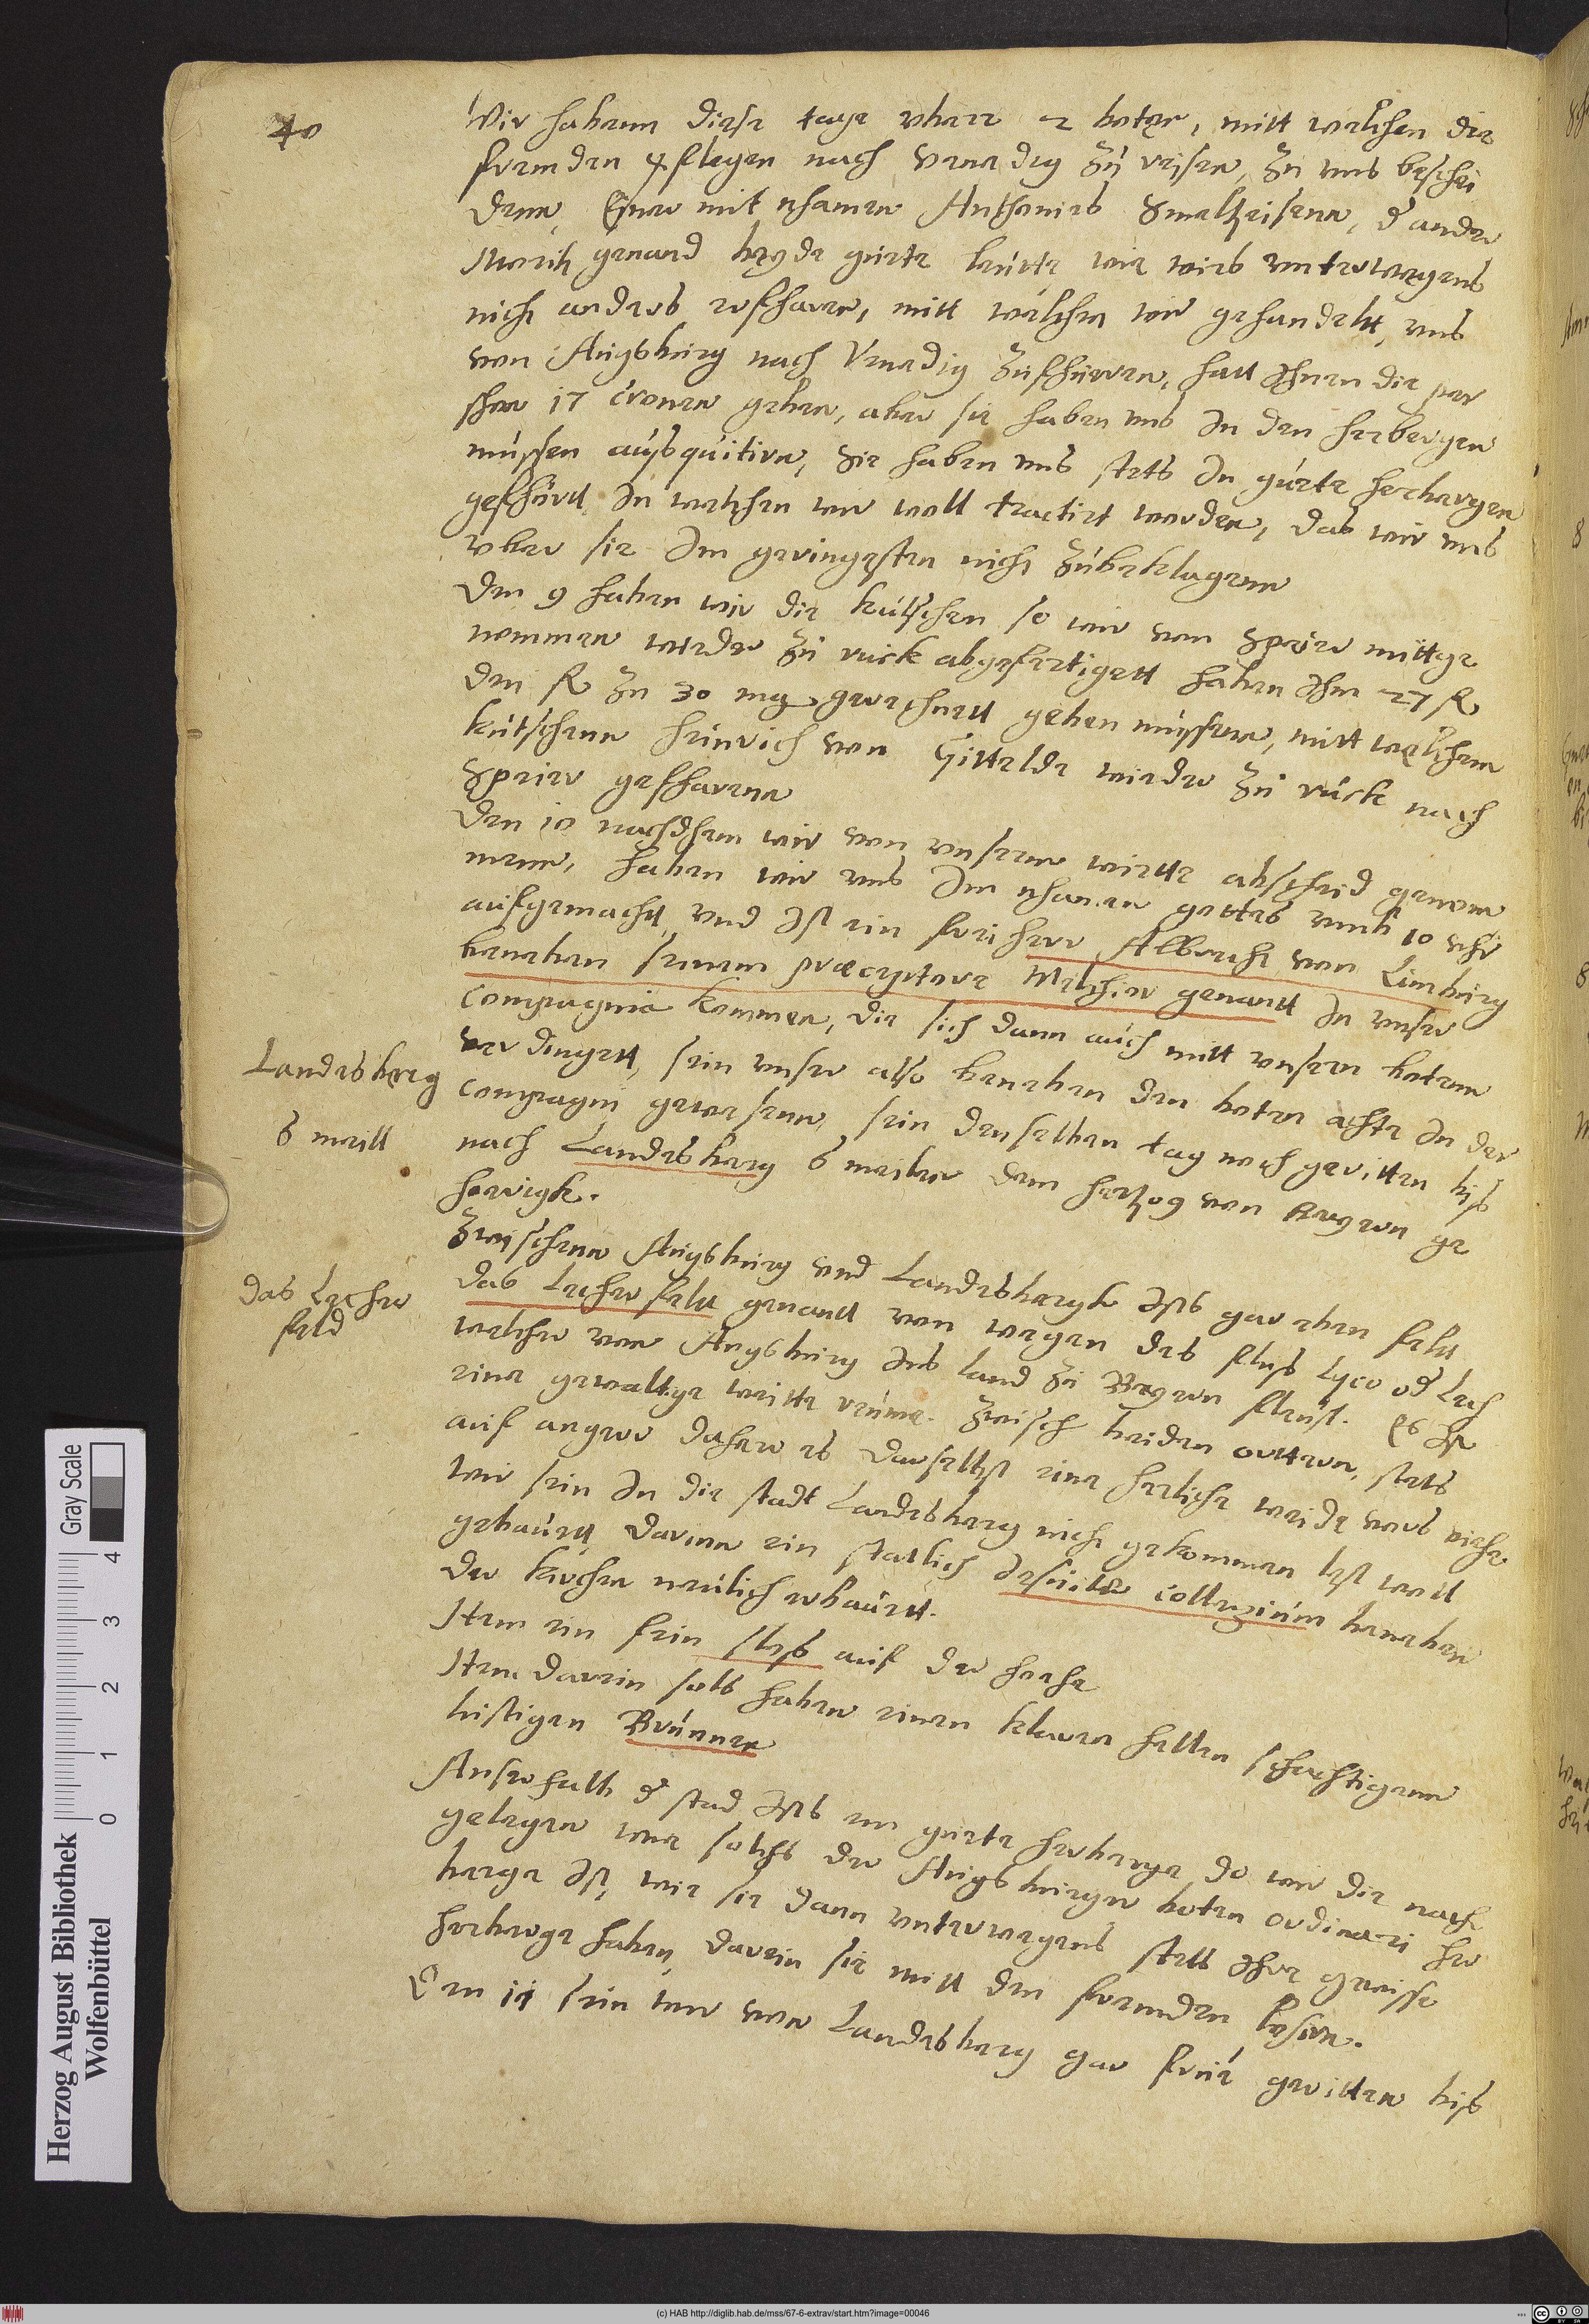 40
Wir habenn diese tage uber 2 boten, mitt welchen die
fremden pflegen nach Venedig zu reisen, zu uns beschei
denn, Einer mit nhamen Anthonius Smaltzeisenn, d ander
Moritz genand beyde guete leutte wie wirs unterwegens
nicht anders erfharen, mitt welchen wir gehandelt, uns
von Augsburg nach Venedig zufhüren, hatt Ihnen die per
shon 17 Cronen geben, aber sie haben uns In den herbergen
müssen ausquitiren, Sie haben uns stets In guete herbergen
gefhürtt In welchen wir woll tractirt worden, das wir uns
uber sie Im geringesten nicht zubeklagenn
Den 9 haben wir die kutschen so wir von Speier mittge
nommen wieder zu ruck abgefertigett haben Ihm 27 fl
den fl zu 30 mg gerechnett geben müssenn, mitt welchem
kutschenn Heinrich von Gittelde wieder zu rück nach
Speier gefharenn
Den 10 nachdhem wir von unserm wirtte abscheid genom
menn, haben wir uns Im nhamen gottes umb 10 uhr
aufgemacht, und Ist ein freiherr Albrecht von Limburg
beneben seinem præceptore Melchior genant In unser
Compagnia kommen, die sich dann auch mitt unsern botenn
verdingett, sein unser also beneben den boten achte In der
Compagni gewesenn, sein denselben tag noch geritten biß
nach Landesberg 6 meilen dem hertzog von Beyern ge
horigk.
Landesberg
6 meill
Zwischenn Augsburg und Landesbergk Ists gar eben feltt
das Lecher feltt genantt von wegen des flus Lyco od Lech
welcher von Augsburg Ins land zu Beyern fleust. Es Ist
eine gewaltige weitte reume. Zwisch beiden orttern, stets
auf anger daher es darselbst eine herliche weide vors viehe
das Lecher
feld
wir sein In die stadt Landesberg nicht gekommen Ist woll
gebauett, darinn ein statlich Jesuiter Collegium beneben
der kirchen neulich erbauett.
Item ein fein sloß auf der hoehe
Item darein sols haben einen klaren hellen schechtigenn
lustigen Brunnen
Auserhalb d stad Ists ein guete herberge do wir die nacht
gelegen wie solchs der Augsburger boten ordinari her
berge Ist, wie sie dann unterwegens stets Ihre gewisse
herberge haben, darein sie mitt den fremden losiren.
Den 11 sein wir von Landesberg gar früe geritten biß
Herzog August Bibliothek
Wolfenbüttel
Gray Scale
0 1 2 3 4
(c) HAB http://diglib.hab.de/mss/67-6-extrav/start.htm?image=00046